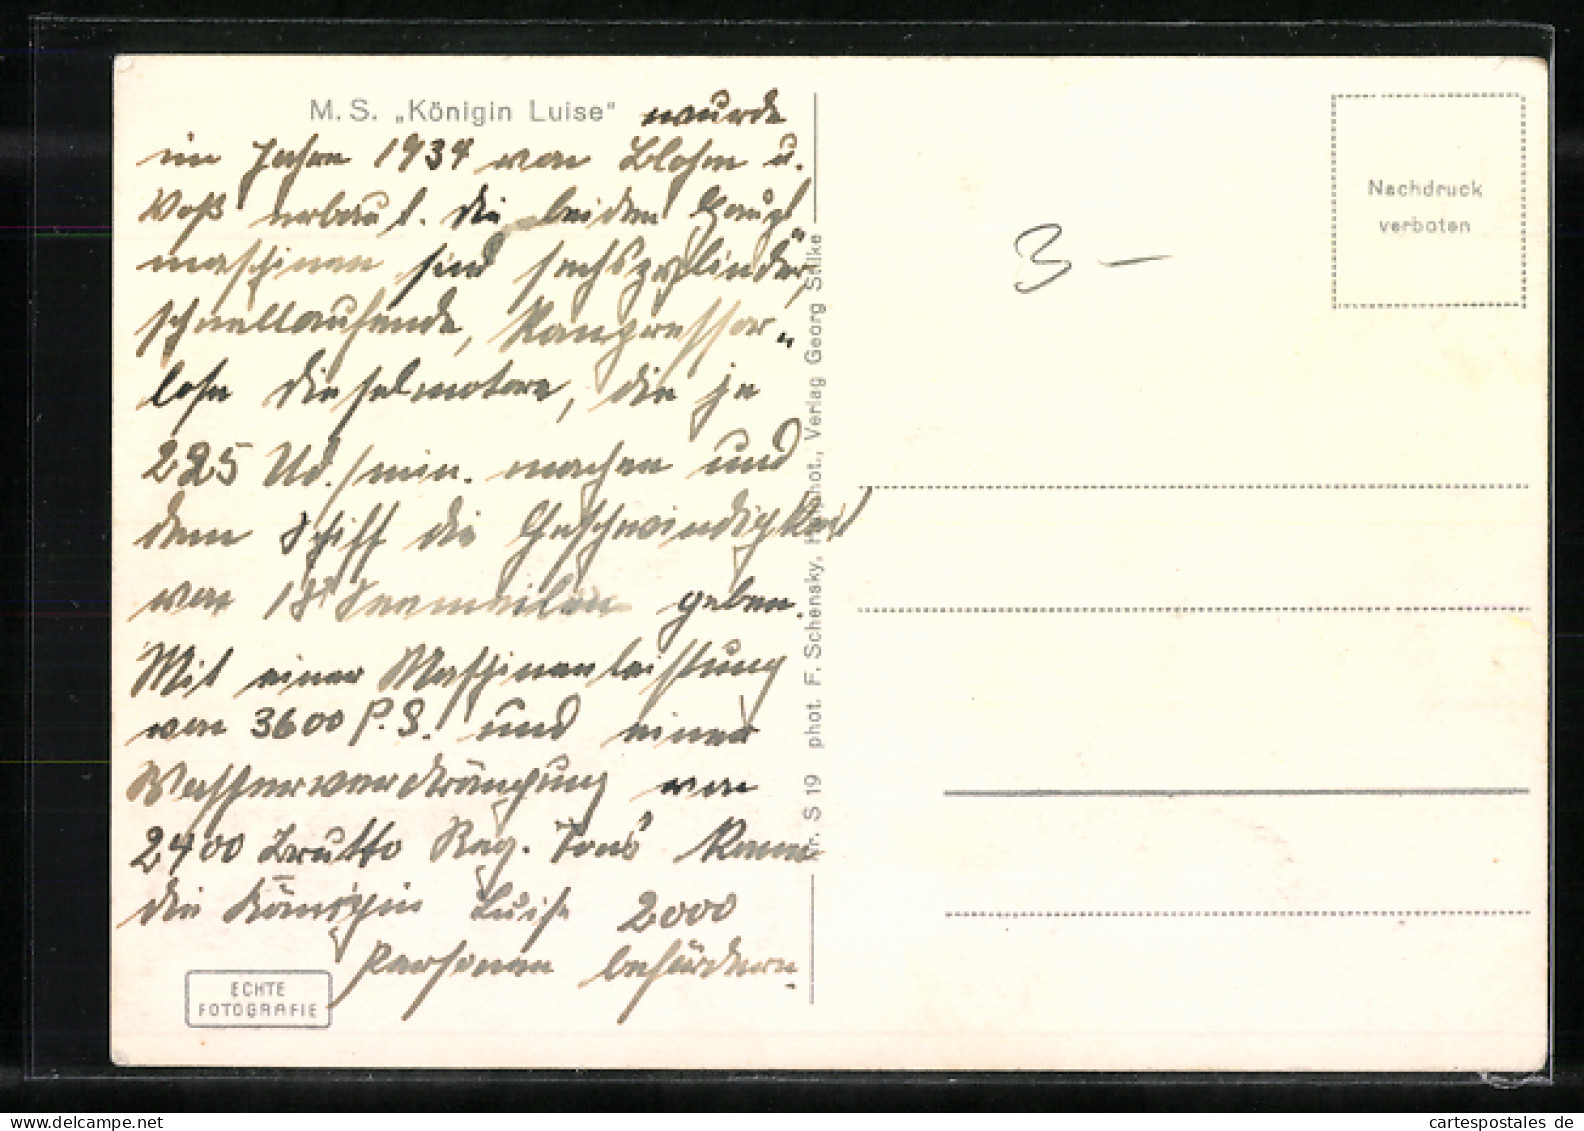 M. S. „Königin Luise" wurde
im Jahre 1934 von Blohm u.
Voß erbaut. Die beiden Haupt„
maschinen sind sechszylinder,
schnellaufende, Kompressor„
lose Dieselmotore, die je
225 Ud./min. machen und
dem Schiff die Geschwindigkeit
von 18 Seemeilen geben.
Mit einer Maschinenleistung
von 3600 P.S. und einer
Wasserverdrängung von
2400 Brutto Reg. Tons kann
die Königin Luise 2000
Personen befördern.
ECHTE
FOTOGRAFIE
Nr. S 19 phot. F. Schensky, Hofphot., Verlag Georg Stilke
3 –
Nachdruck
verboten
cartespostales de